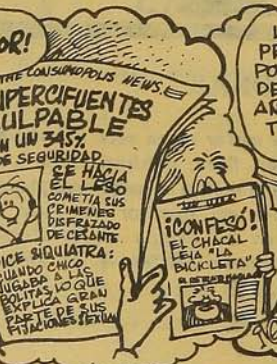 OR!
THE CONSUMOPOLIS NEWS.
IPERCIFUENTES
ULPABLE
N UN 345%
DE SEGURIDAD.
SE HACÍA
EL LESO
COMETÍA SUS
CRIMENES
DISFRAZADO
DE CESANTE
ICE SIQUIATRA:
UANDO CHICO
UGABA A LAS
BOLITAS, LO QUE
EXPLICA GRAN
PARTE DE SUS
FIJACIONES SEXUA
¡CONFESÓ!
EL CHACAL
LEIA "LA
BICICLETA"
L
PR
PO
DE
AN
T